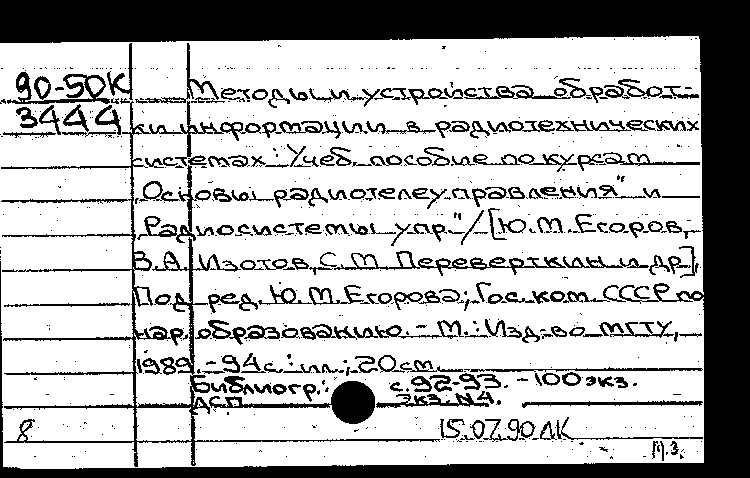 90-50К Методы и устройства обработ-
3444 ки информации в радиотехнических
системах: Учеб. пособие по курсам
„Основы радиотелеуправления" и
„Радиосистемы упр."/[Ю.М.Егоров,
В.А. Изотов, С.М. Переверткин и др],
Под ред. Ю.М.Егорова; Гос. ком. СССР по
нар. образованию. - М.: Изд-во МГТУ,
1989. - 94с.: ил.; 20см.
Библиогр.: с.92-93. - 100экз.
ДСП экз. N4.
8 15.07.90 ЛК
М.З.